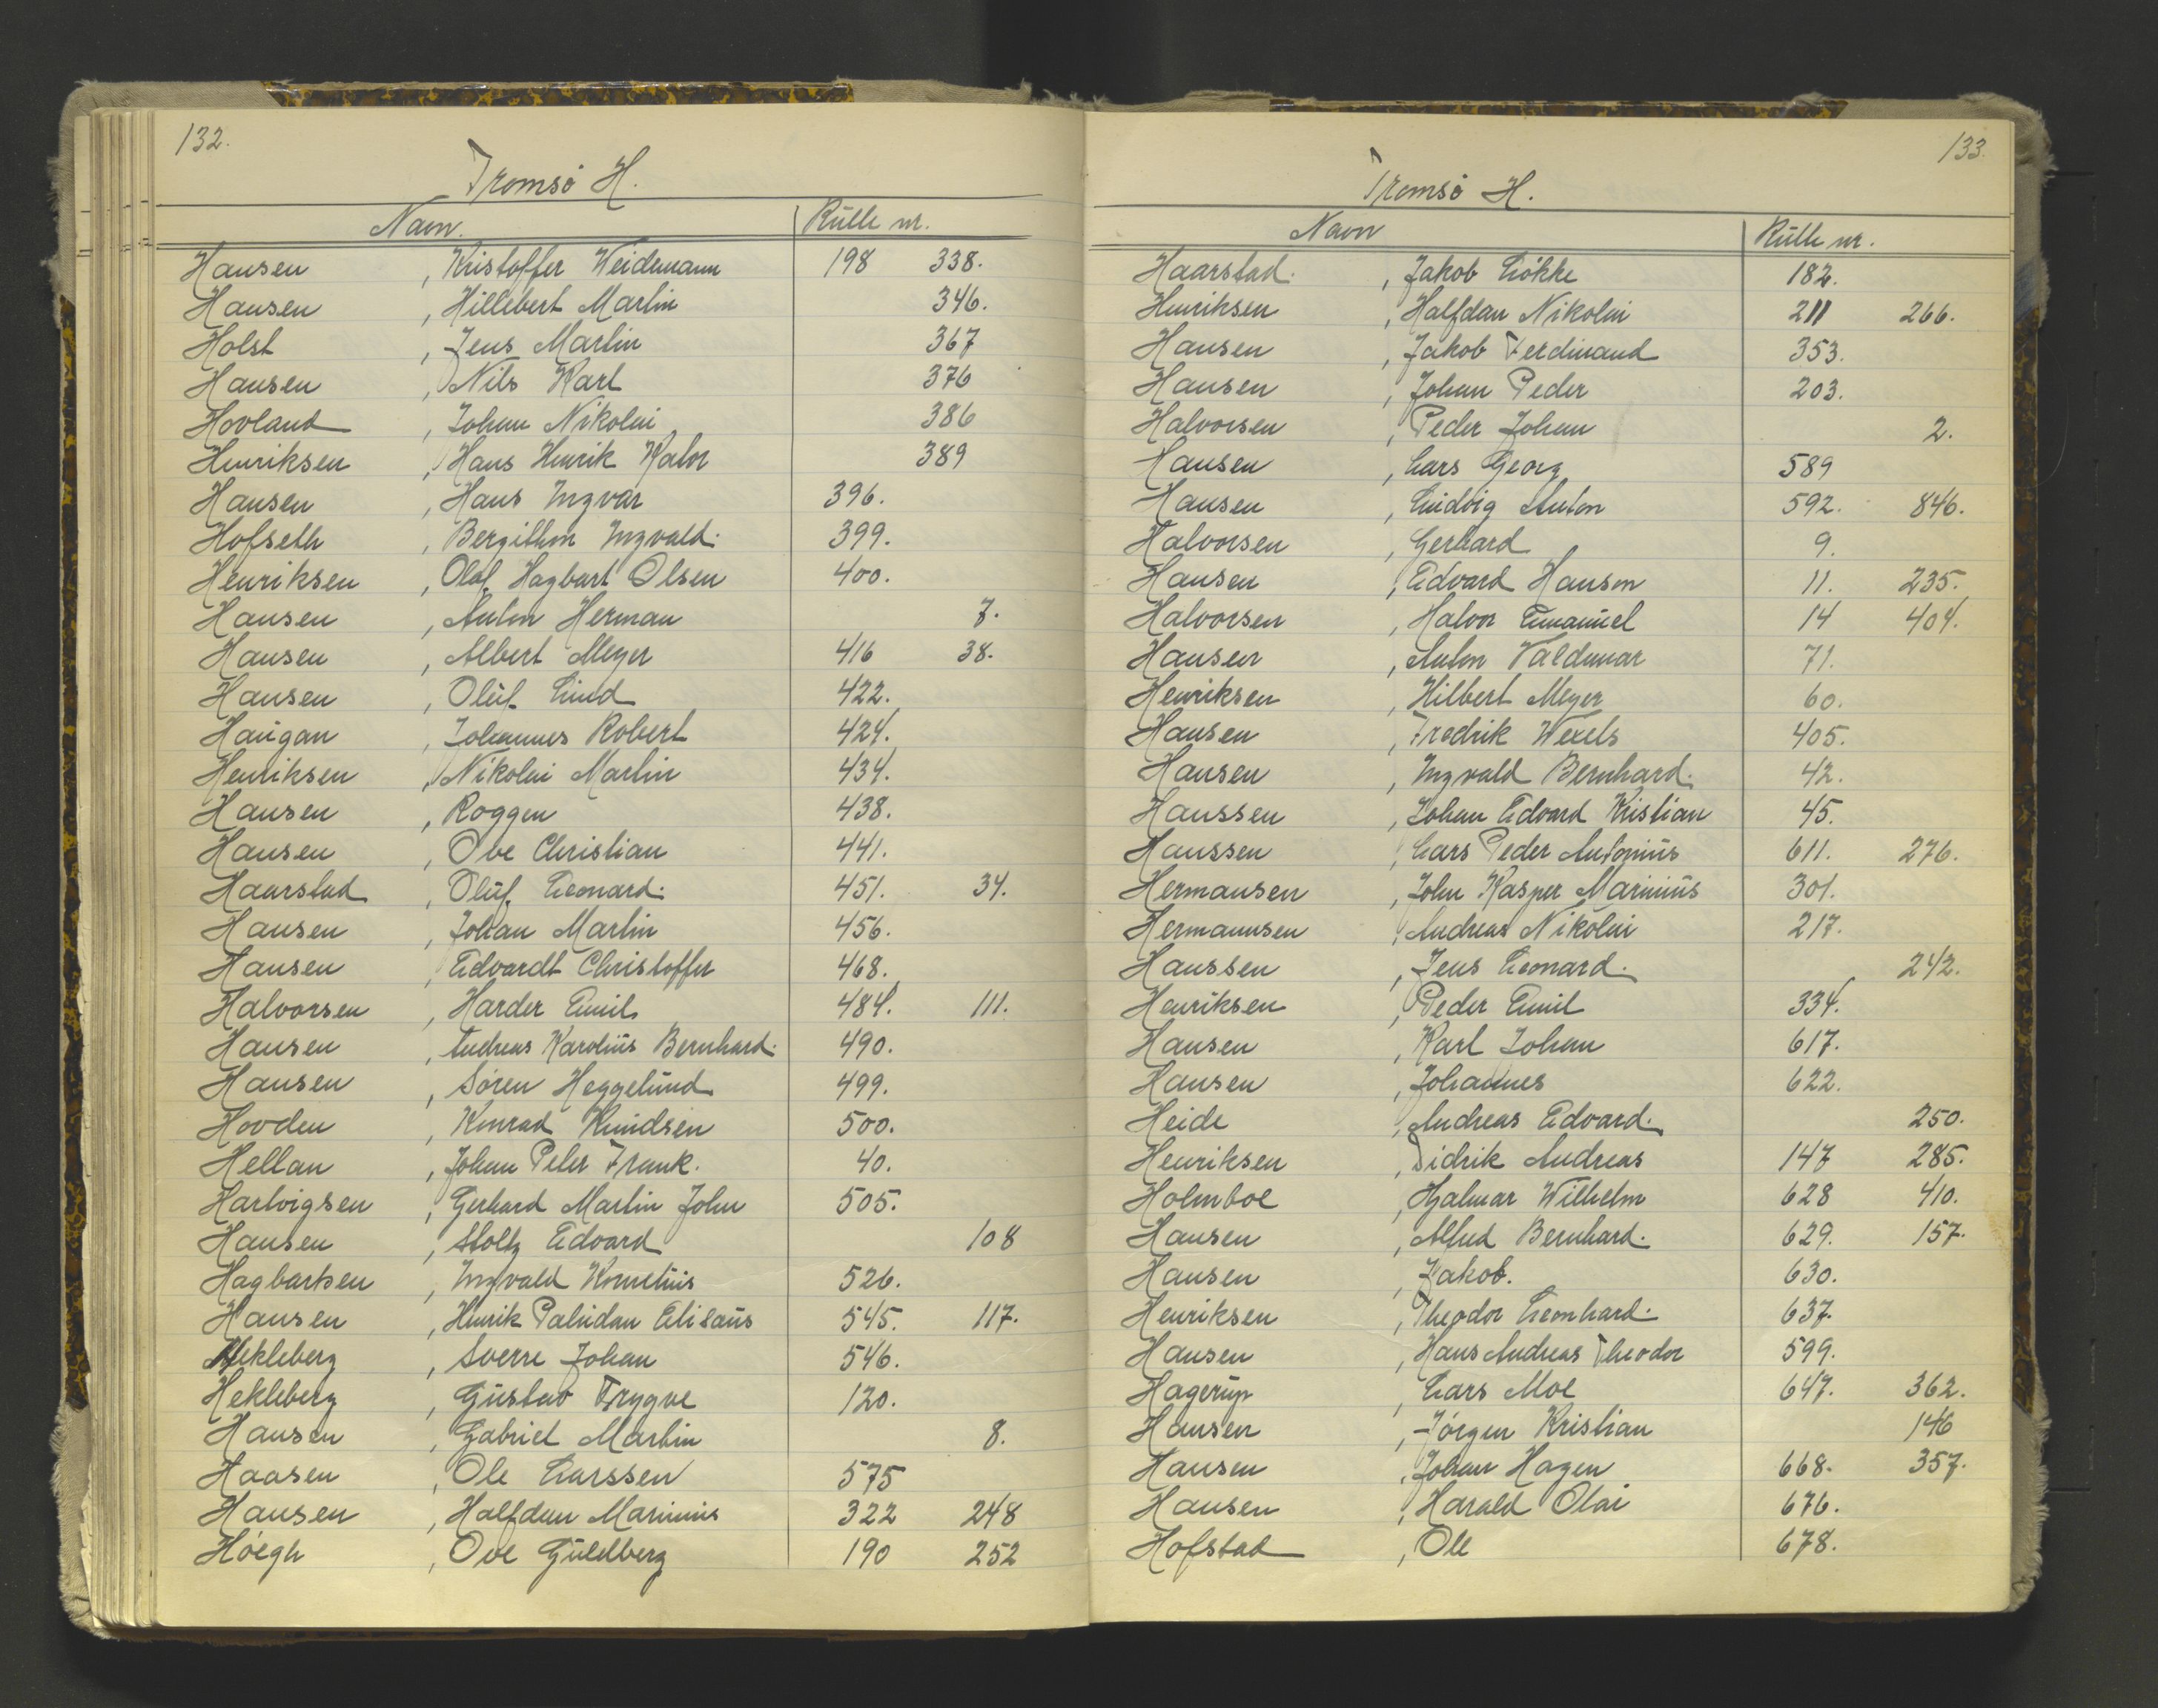 132.
Tromsö H.
Navn. Rulle nr.
Hansen , Kristoffer Weidemann 198 338.
Hansen , Hillebert Martin 346.
Holst , Jens Martin 367
Hansen , Nils Karl 376
Hovland , Johan Nikolai 386
Henriksen , Hans Henrik Kalor 389
Hansen , Hans Ingvar 396.
Hofseth , Bergithon Ingvald. 399.
Henriksen , Olaf Hagbart Olsen 400.
Hansen , Anton Herman 7.
Hansen , Albert Meyer 416 38.
Hansen , Oluf Lind 422.
Haugan , Johannes Robert 424.
Henriksen , Nikolai Martin 434.
Hansen , Roggen 438.
Hansen , Ove Christian 441.
Haarstad , Oluf Leonard. 451. 34.
Hansen , Johan Martin 456.
Hansen , Edvardt Christoffer 468.
Halvorsen , Harder Emil 484. 111.
Hansen , Andreas Karolius Bernhard. 490.
Hansen , Sören Heggelund 499.
Hovden , Konrad Knudsen 500.
Hellan , Johan Peter Frank. 40.
Hartvigsen , Gerhard Martin John 505.
Hansen , Stoltz Edvard 108
Hagbartsen , Ingvald Kornelius 526.
Hansen , Henrik Paludan Elisæus 545. 117.
Hekleberg , Sverre Johan 546.
Hekleberg , Gustav Trygve 120.
Hansen , Gabriel Martin 8.
Haasen , Ole Larssen 575
Hansen , Halfdan Marinius 322 248
Höegh , Ove Guldberg 190 252
133.
Tromsö H.
Navn Rulle nr.
Haarstad. , Jakob Lökke 182.
Henriksen , Halfdan Nikolai 211 266.
Hansen , Jakob Ferdinand 353.
Hansen , Johan Peder 203.
Halvorsen , Peder Johan 2.
Hansen , Lars Georg 589
Hansen , Ludvig Anton 592. 846.
Halvorsen , Gerhard 9.
Hansen , Edvard Hanson 11. 235.
Halvorsen , Halvor Emanuel 14 404.
Hansen , Anton Valdemar 71.
Henriksen , Hilbert Meyer 60.
Hansen , Fredrik Wexels 405.
Hansen , Ingvald Bernhard. 42.
Hanssen , Johan Edvard Kristian 45.
Hanssen , Lars Peder Antonius 611. 276.
Hermansen , John Kasper Marinius 301.
Hermannsen , Andreas Nikolai 217.
Hanssen , Jens Leonard. 242.
Henriksen , Peder Emil 334.
Hansen , Karl Johan 617.
Hansen , Johannes 622.
Heide , Andreas Edvard. 250.
Henriksen , Didrik Andreas 147 285.
Holmboe , Hjalmar Wilhelm 628 410.
Hansen , Alfred Bernhard. 629. 157.
Hansen , Jakob. 630.
Henriksen , Theodor Leonhard. 637.
Hansen , Hans Andreas Theodor 599.
Hagerup , Lars Moe 647. 362.
Hansen , Jörgen Kristian 146
Hansen , Johan Hagen 668. 357.
Hansen , Harald Olai 676.
Hofstad , Ole 678.